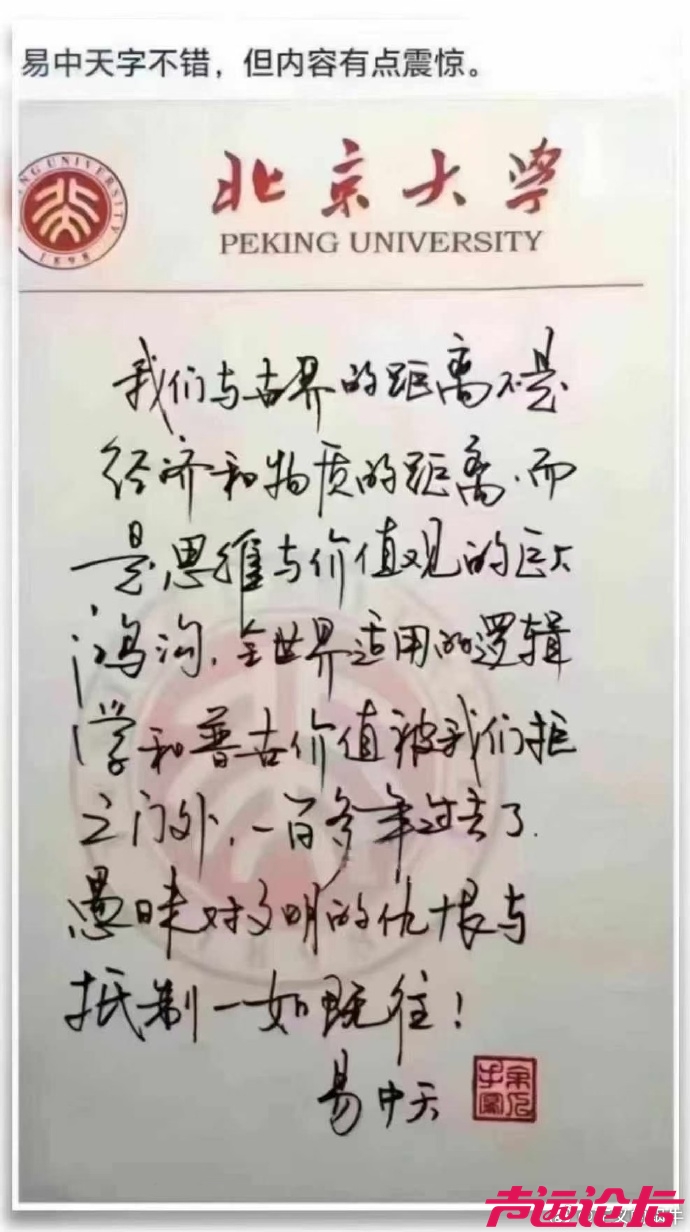 易中天字不错，但内容有点震惊。
PEKING UNIVERSITY
1898
北京大学
PEKING UNIVERSITY
我们与世界的距离不是
经济和物质的距离.而
是思维与价值观的巨大
鸿沟.全世界适用的逻辑
学和普世价值被我们拒
之门外.一百多年过去了.
愚昧对文明的仇恨与
抵制一如既往！
易中天
声远论坛